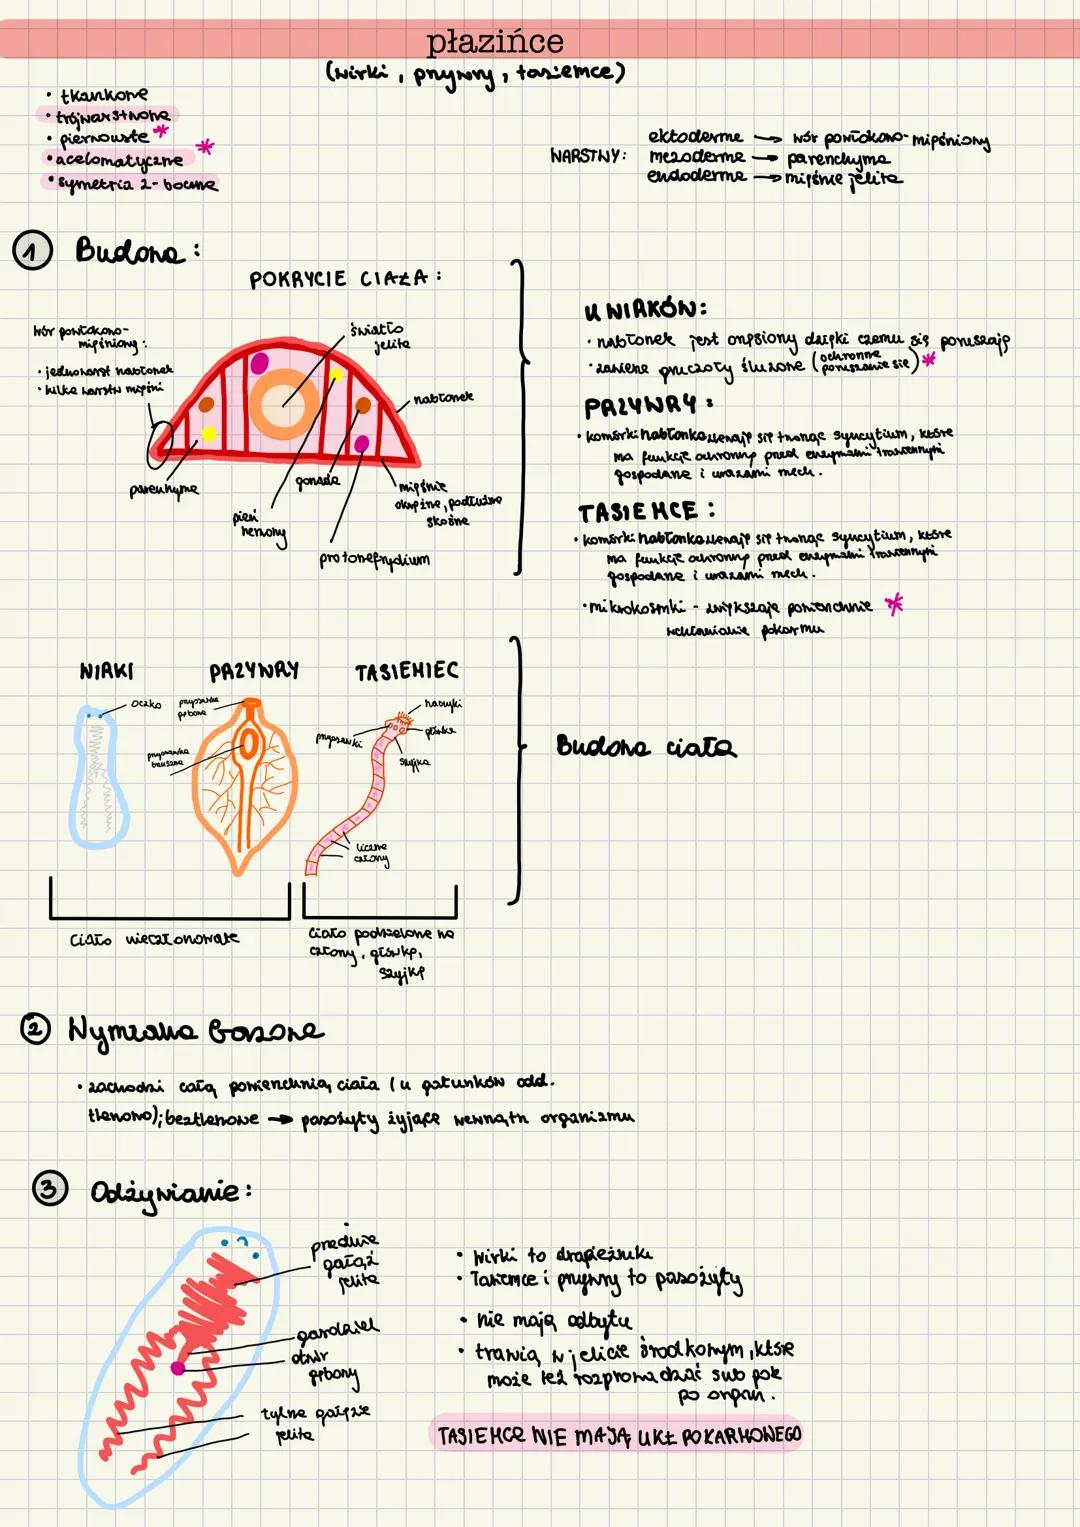 płazińce
(wirki, przywry, tasiemce)
• tkankowe
• trójwarstwowe
• pierwouste *
• acelomatyczne *
• symetria 2-boczna
WARSTWY:
ektoderma → wór powłokowo-mięśniowy
mezoderma → parenchyma
endoderma → mięśnie jelita
1 Budowa:
POKRYCIE CIAŁA:
wór powłokowo-
mięśniowy:
• jednowarst nabłonek
• kilka warstw mięśni
światło
jelita
nabłonek
parenchyma
pień
nerwowy
gonada
protonefrydium
mięśnie
okrężne, podłużne
skośne
U WIRKÓW:
• nabłonek jest orzęsiony dzięki czemu się poruszają
• zawiera gruczoły śluzowe (ochronne
poruszanie się) *
PRZYWRY:
• komórki nabłonka zlewają się tworząc syncytium, które
ma funkcję ochronną przed enzymami trawiennymi
gospodarza i urazami mech.
TASIEMCE:
• komórki nabłonka zlewają się tworząc syncytium, które
ma funkcję ochronną przed enzymami trawiennymi
gospodarza i urazami mech.
• mikrokosmki - zwiększają powierzchnię *
wchłaniania pokarmu
WIRKI
PRZYWRY
TASIEMIEC
oczko
przyssawka
gębowa
przyssawka
brzuszna
haczyki
przyssawki
główka
szyjka
liczne
człony
Budowa ciała
ciało nieczłonowate
ciało podzielone na
człony, główkę,
szyjkę
2 Wymiana gazowa
• zachodzi całą powierzchnią ciała (u gatunków odd.
tlenowo); beztlenowe → pasożyty żyjące wewnątrz organizmu
3 Odżywianie:
przednia
gałąź
jelita
gardziel
otwór
gębowy
tylne gałęzie
jelita
• wirki to drapieżniki
• Tasiemce i przywry to pasożyty
• nie mają odbytu
• trawią w jelicie środkowym, które
może też rozprowadzać sub pok
po organ.
TASIEMCE NIE MAJĄ UKŁ POKARMOWEGO